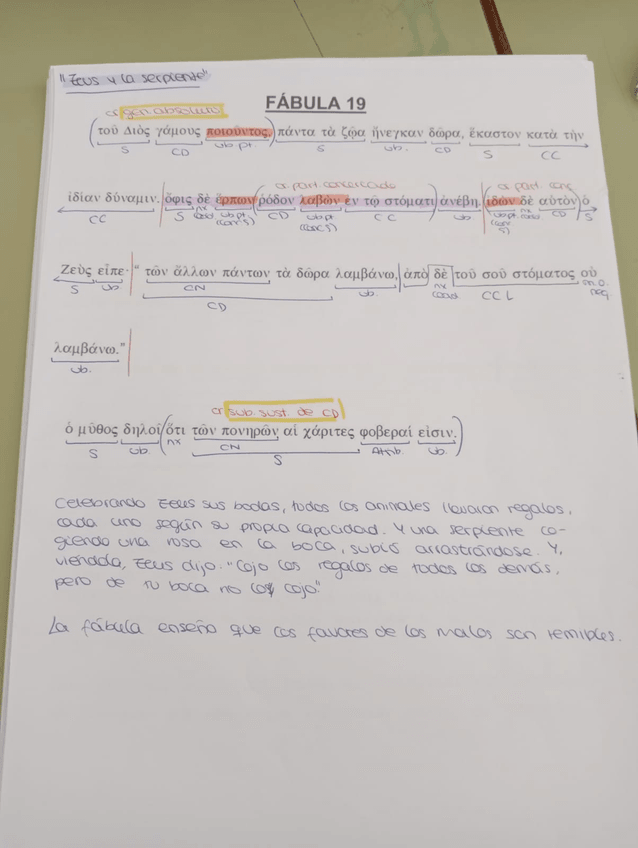 "Zeus y la serpiente"
or gen absoluto
FÁBULA 19
τοῦ Διὸς γάμους ποιοῦντος, πάντα τὰ ζῷα ἤνεγκαν δῶρα, ἕκαστον κατὰ τὴν
S CD vb pt. S vb. CD S CC
or. part. concertado or part. conc
ἰδίαν δύναμιν. ὄφις δὲ ἕρπων ῥόδον λαβὼν ἐν τῷ στόματι ἀνέβη. ἰδὼν δὲ αὐτὸν ὁ
CC S nx coord vb pt (conc S) CD vb pt (conc S) CC vb vb pt. (conc S) nx coord CD S
Ζεὺς εἶπε· "τῶν ἄλλων πάντων τὰ δῶρα λαμβάνω, ἀπὸ δὲ τοῦ σοῦ στόματος οὐ
S vb. CN vb. nx coord CC L neg
CD
λαμβάνω."
vb.
or sub. sust. de CD
ὁ μῦθος δηλοῖ ὅτι τῶν πονηρῶν αἱ χάριτες φοβεραί εἰσιν.
S vb. nx CN Atrib. vb.
S
Celebrando Zeus sus bodas, todos los animales llevaron regalos,
cada uno según su propia capacidad. Y una serpiente co-
giendo una rosa en la boca, subió arrastrándose. Y,
viéndola, Zeus dijo: "Cojo los regalos de todos los demás,
pero de tu boca no los cojo."
La fábula enseña que los favores de los malos son temibles.